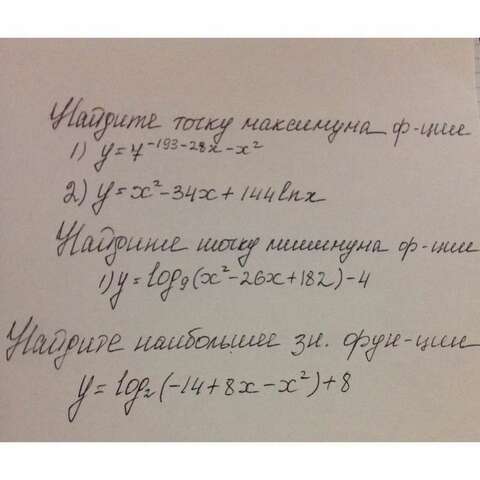 Найдите точку максимума ф-ции
1) y = 7^-193-28x-x²
2) y = x² - 34x + 144 ln x
Найдите точку минимума ф-ции
1) y = log₉(x² - 26x + 182) - 4
Найдите наибольшее зн. функ-ции
y = log₂(-14 + 8x - x²) + 8